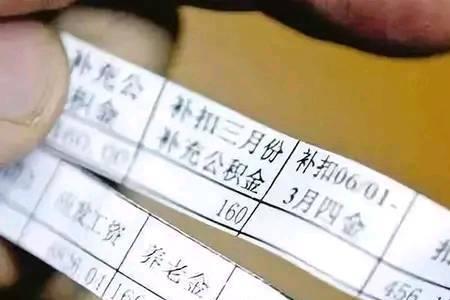 补充公
积金
160.00
补扣三月份
补充公积金
160
补扣06/01-
3月四金
456.
发工资
养老金